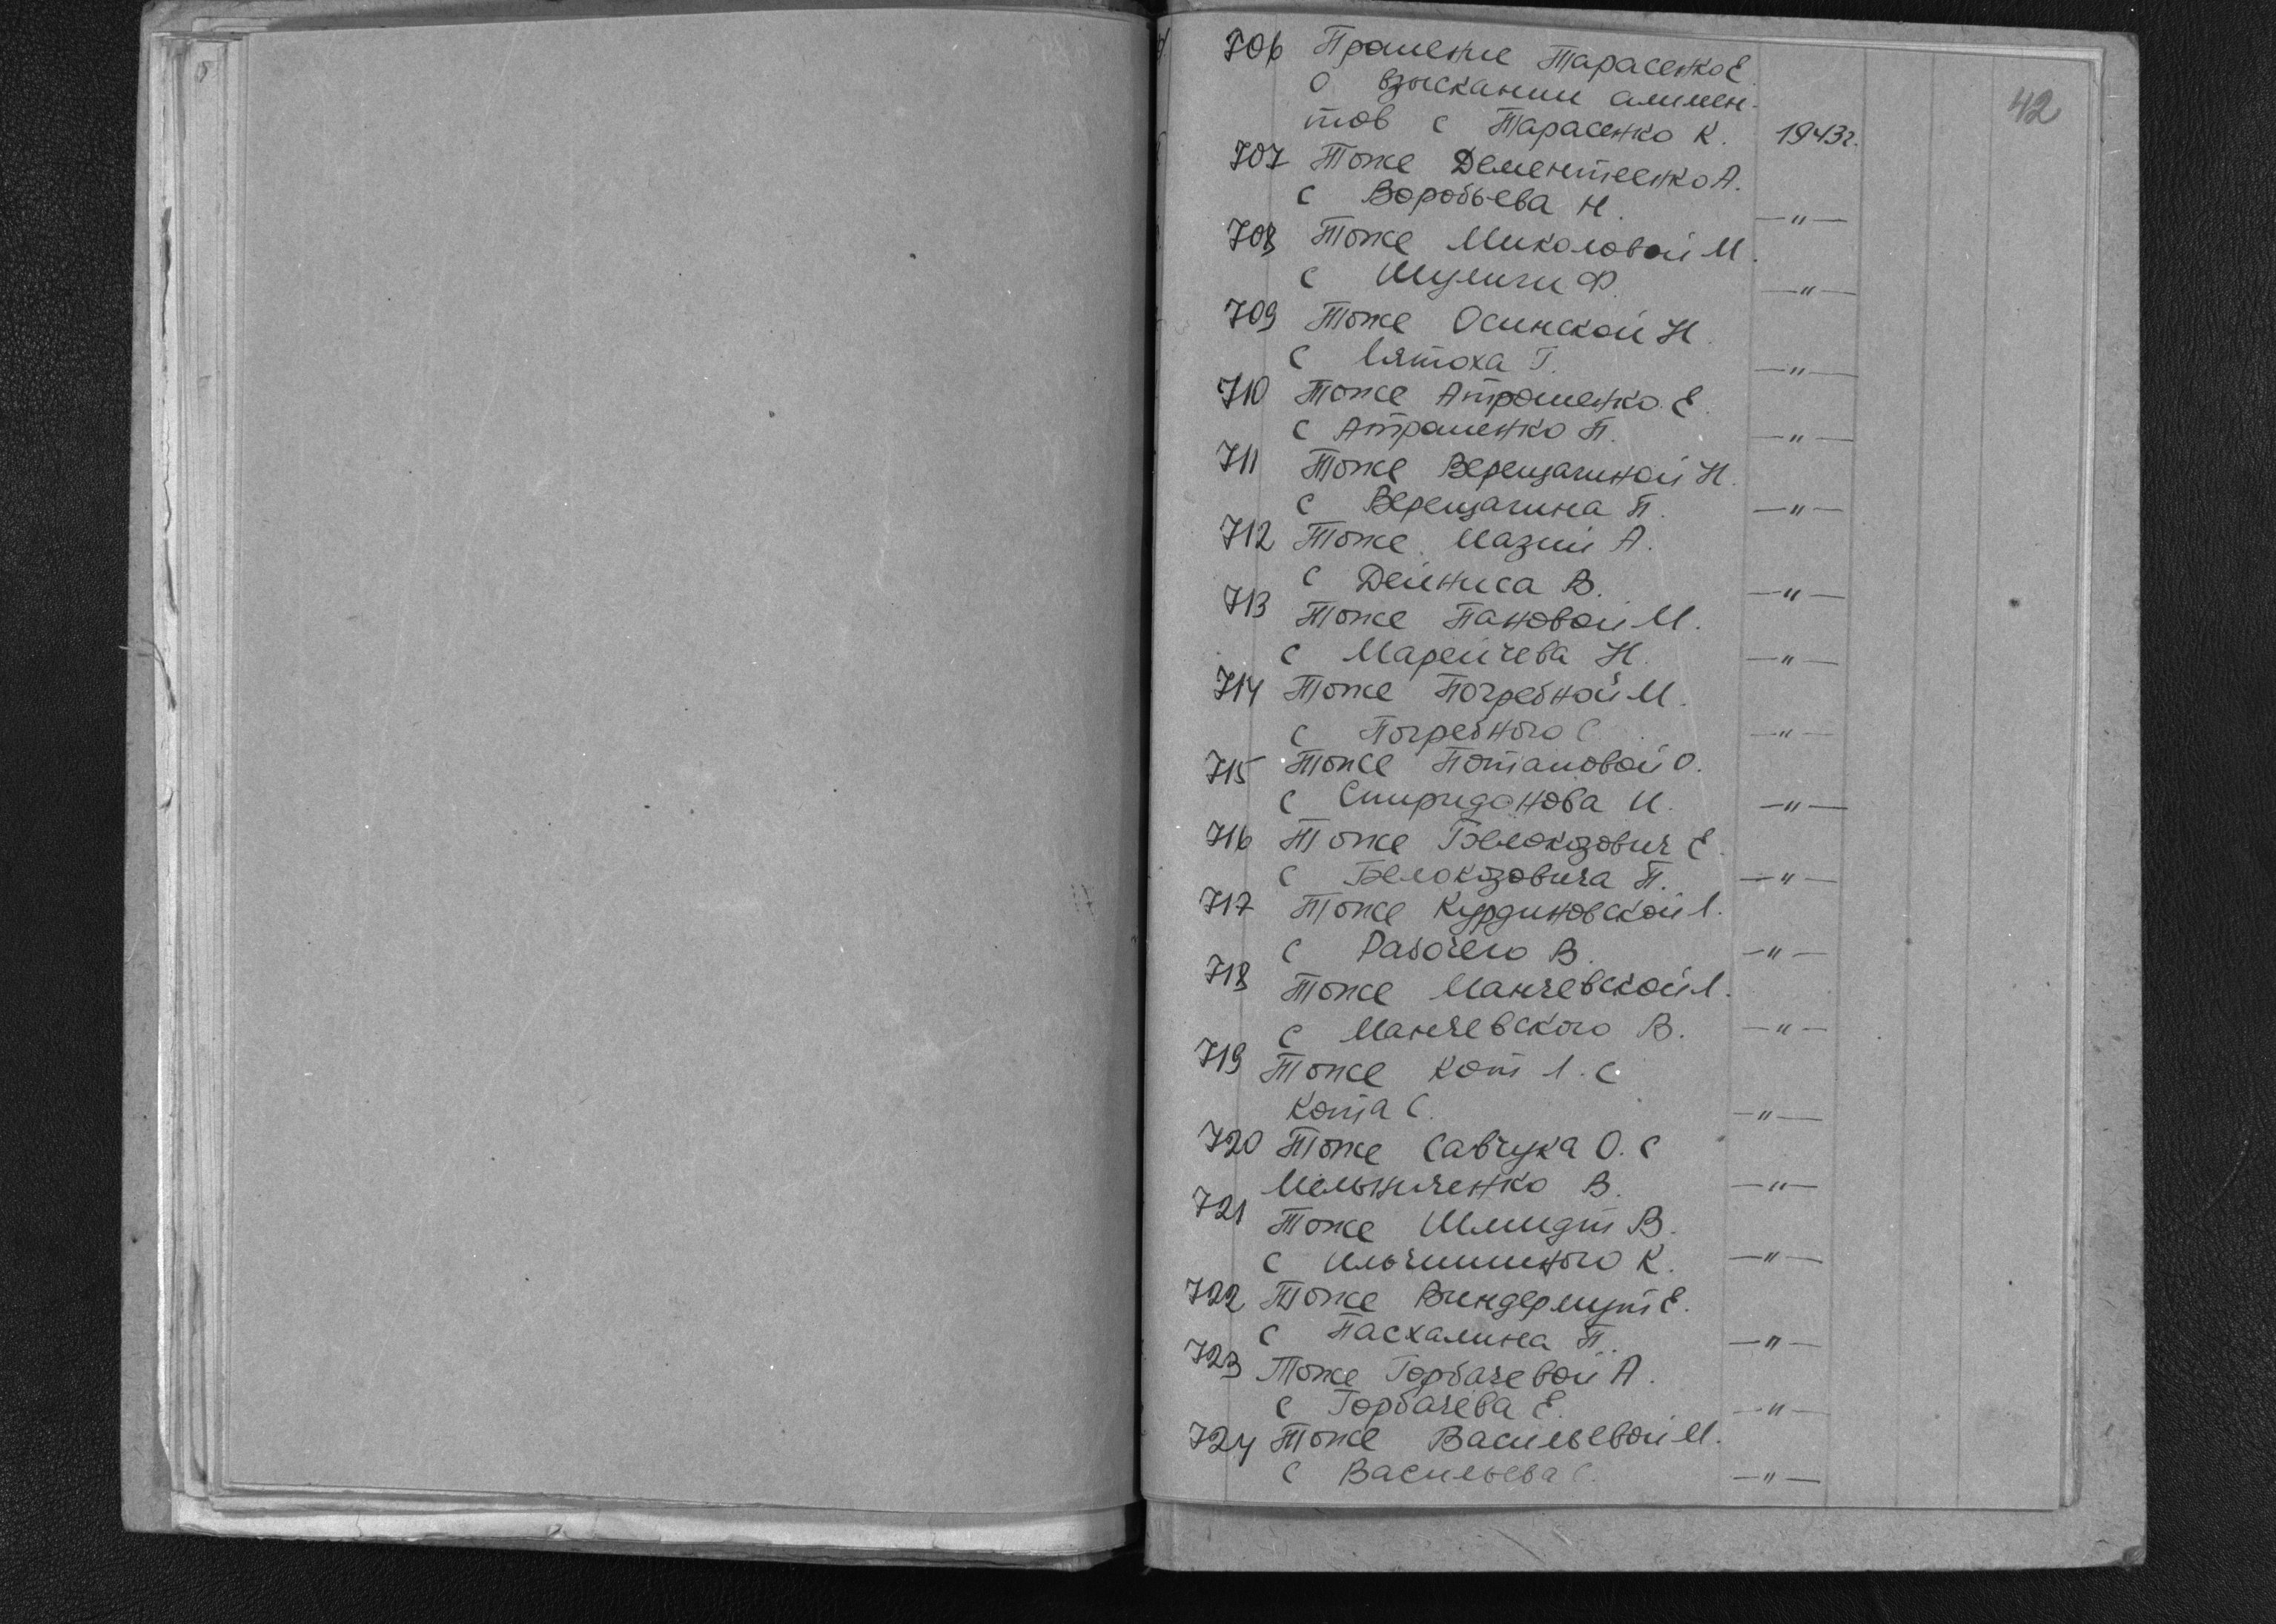 42
706 Прошение Тарасенко Е.
о взыскании алимен-
тов с Тарасенко К. 1943г.
707 Тоже Дементеенко А.
с Воробьева Н. —"—
708 Тоже Миколовой М.
с Шулиги Ф. —"—
709 Тоже Осинской Н.
с Г. —"—
710 Тоже Атрошенко Е.
с Атрошенко П. —"—
711 Тоже Верещагиной Н.
с Верещагина П. —"—
712 Тоже Мазий А.
с Дейниса В. —"—
713 Тоже Пановой М.
с Марейчева Н. —"—
714 Тоже Погребной М.
с Погребного С. —"—
715 Тоже Потаповой О.
с Спиридонова И. —"—
716 Тоже Белокозович Е.
с Белокозовича П. —"—
717 Тоже Курдиновской Л.
с Рабочего В. —"—
718 Тоже Манчевской Л.
с Манчевского В. —"—
719 Тоже Кот Л. с
Кота С. —"—
720 Тоже Савчука О. с
Мельниченко В. —"—
721 Тоже Шмидт В.
с Ильчишиного К. —"—
722 Тоже Виндермут Е.
с Пасхалина П. —"—
723 Тоже Горбачевой А.
с Горбачева Е. —"—
724 Тоже Васильевой М.
с Васильева С. —"—